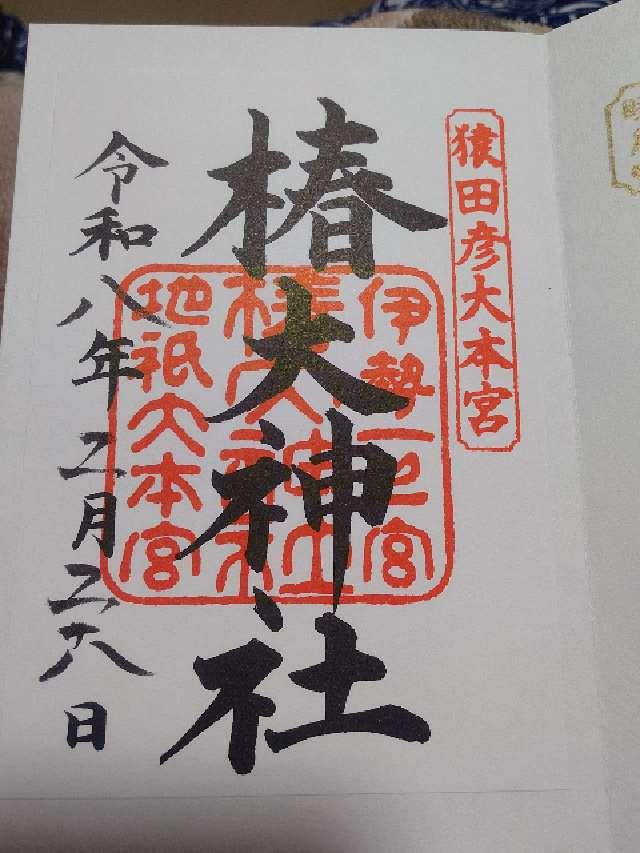 猿田彦大本宮
椿大神社
伊勢一宮
椿大神社
地祇大本宮
令和八年二月二十八日